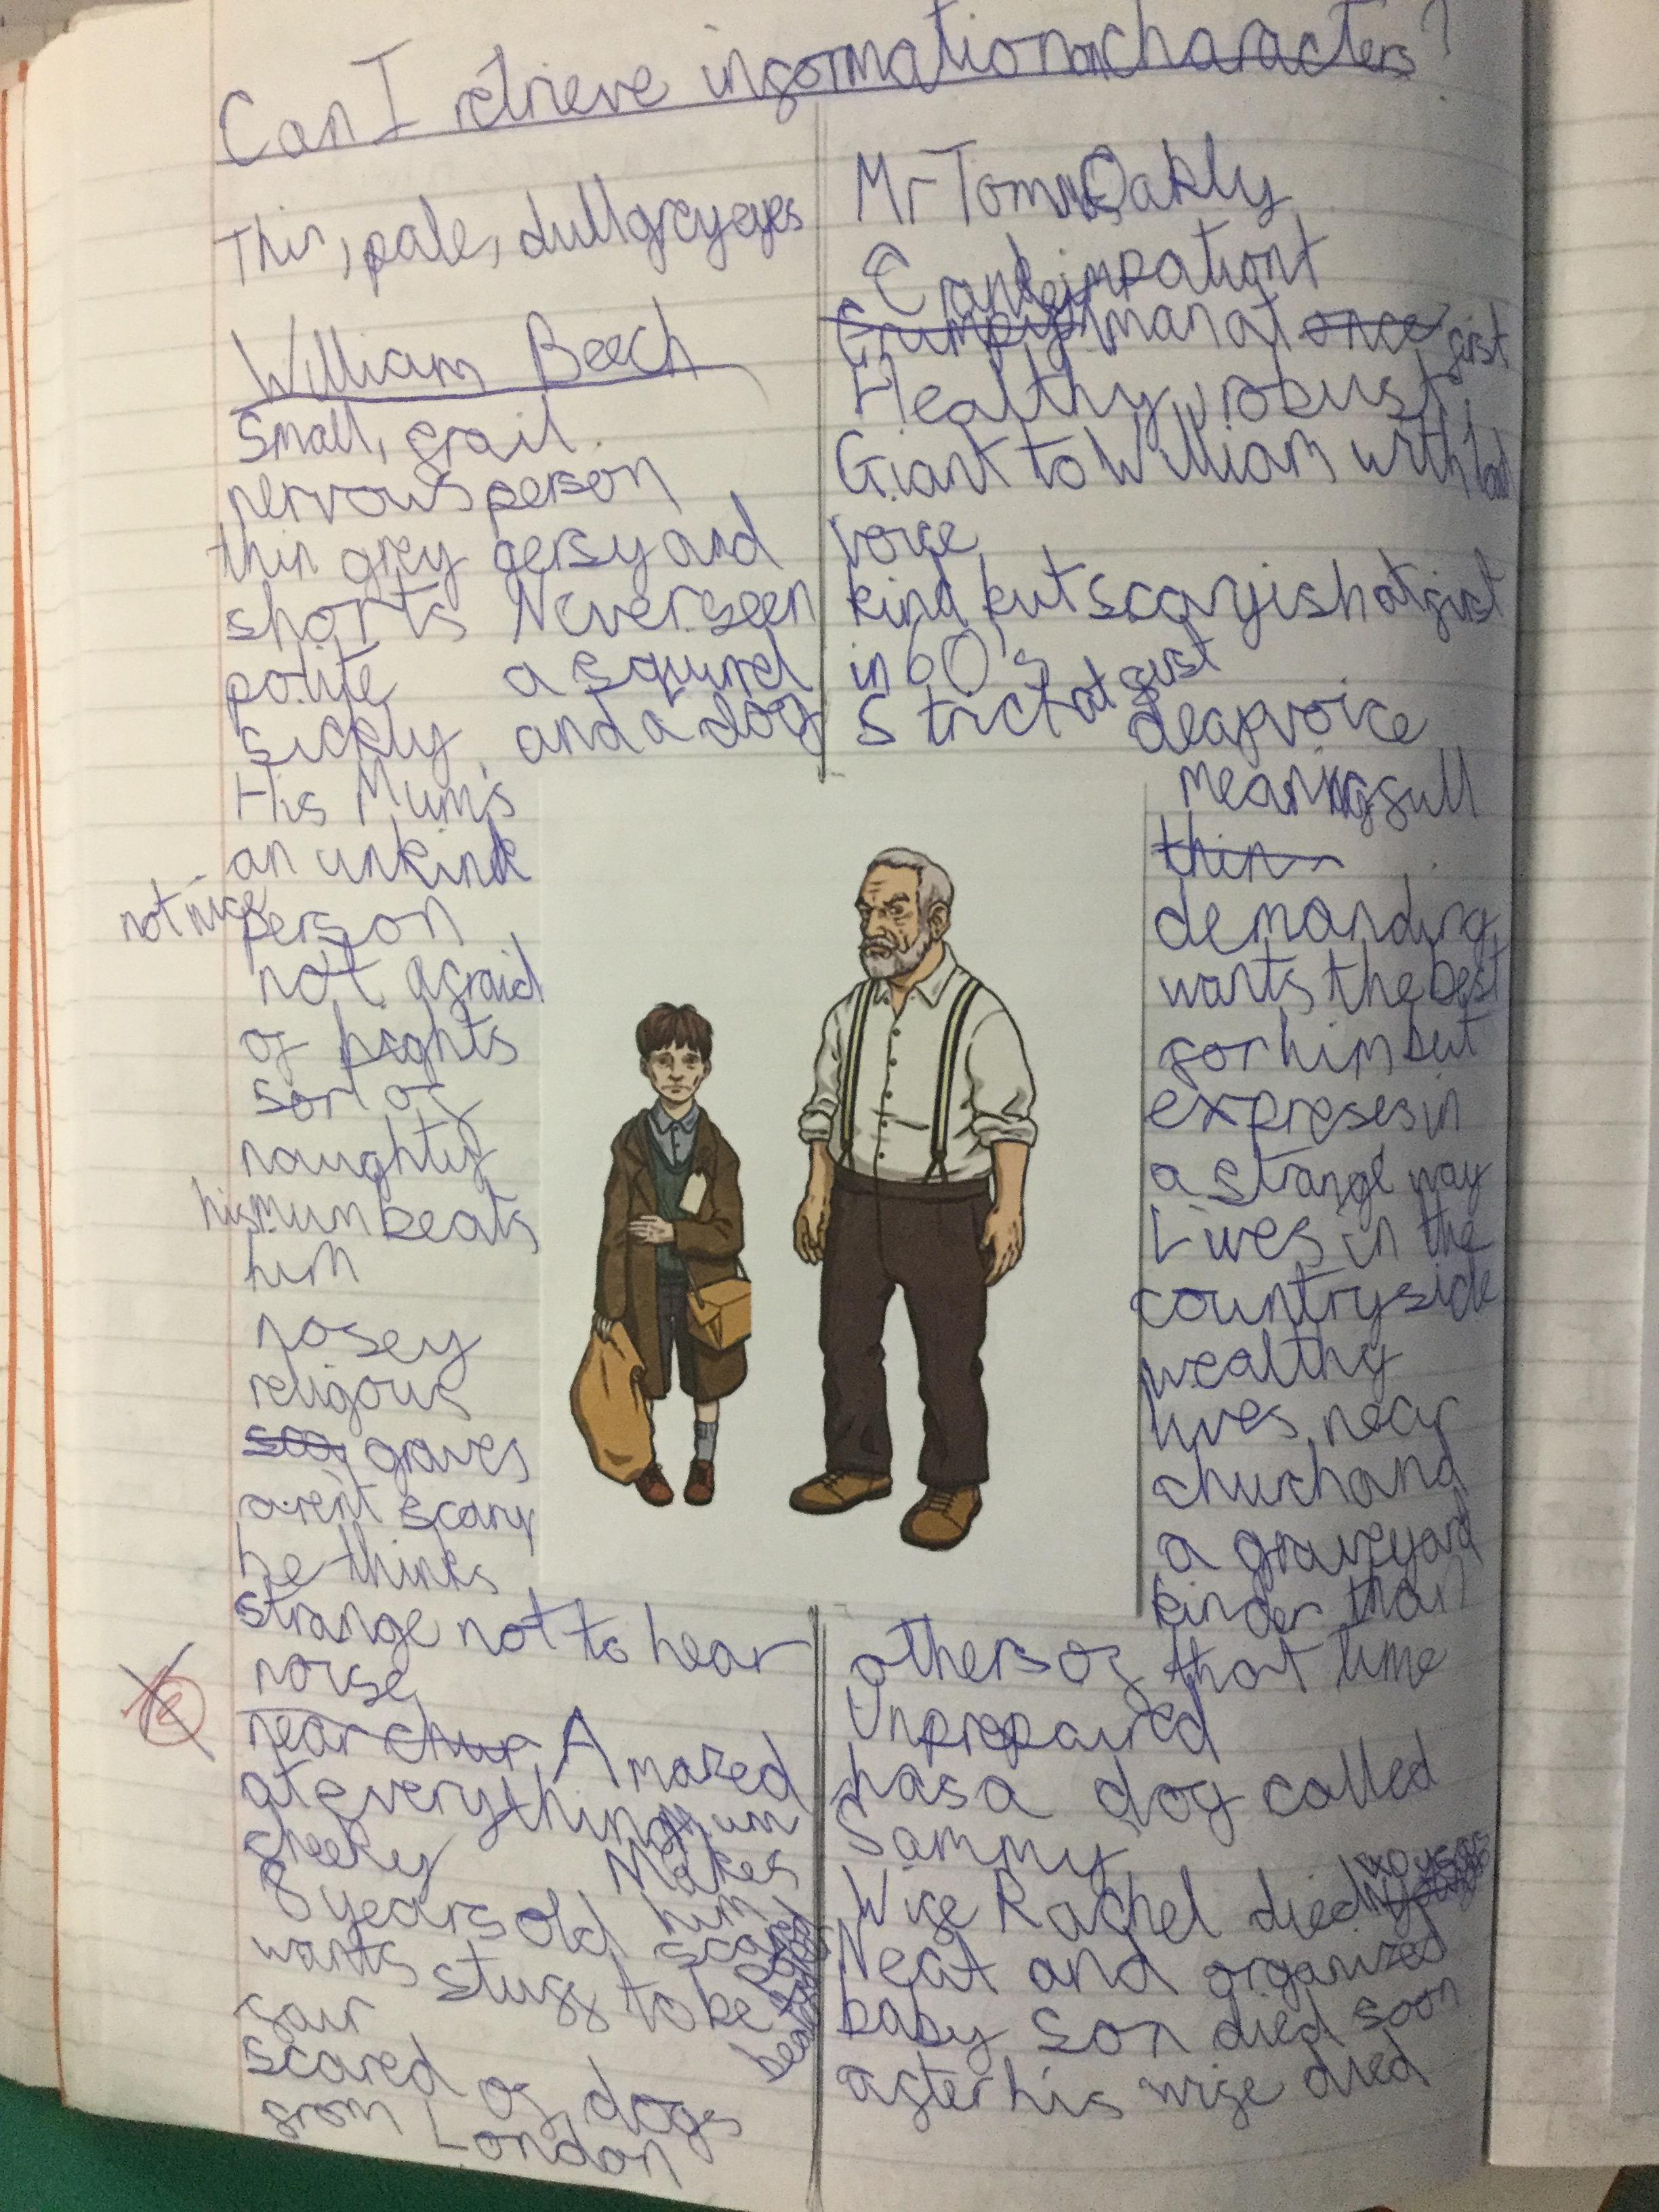 Can I retrieve information on characters?
Thin, pale, dull grey eyes
William Beech
Small, frail
nervous person
thin grey gersy and
shorts Never seen
polite a squirrel
sickly and a dog
His Mum's
an unkind
not nice person
not afraid
of hights
sort of
naughty
his mum beats
him
nosey
religous
graves
arent scary
he thinks
strange not to hear
noise
near chur Amazed
at everything Mum
cheeky Makes
8 years old him
scared
wants stuff to be
fair
scared of dogs
from London
Mr Tom Oakly
impationt
Grumpy man at once first
Healthy, robust
Giant to William with loud
voice
kind but scaryish at first
in 60's
Strict at first deap voice
meaningfull
thin
demanding
wants the best
for him but
expreses in
a strange way
Lives in the
countryside
wealthy
lives near
church and
a graveyard
kinder than
others of that time
Unprepaired
has a dog called
Sammy
Wife Rachel died
Neat and organized
baby son died soon
after his wife died